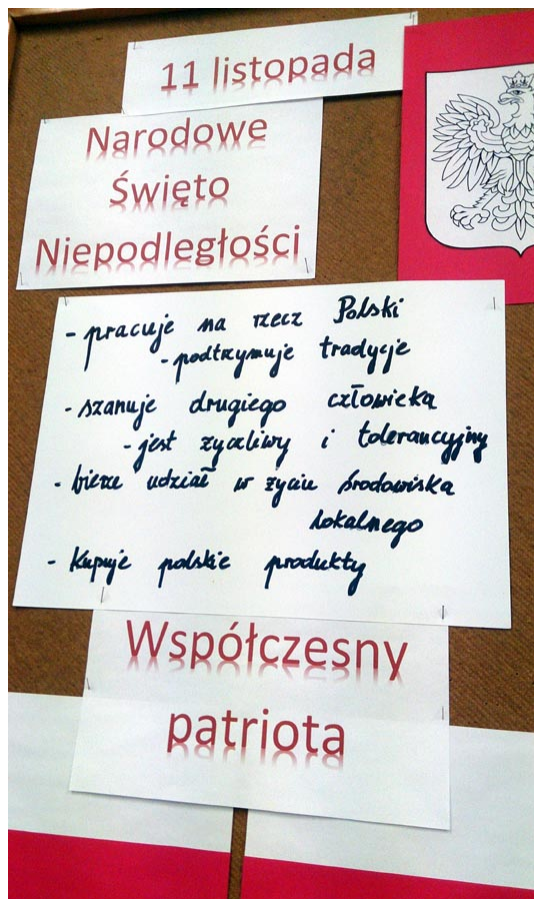 11 listopada
Narodowe
Święto
Niepodległości
- pracuje na rzecz Polski
- podtrzymuje tradycje
- szanuje drugiego człowieka
- jest życzliwy i tolerancyjny
- bierze udział w życiu środowiska
lokalnego
- Kupuje polskie produkty
Współczesny
patriota